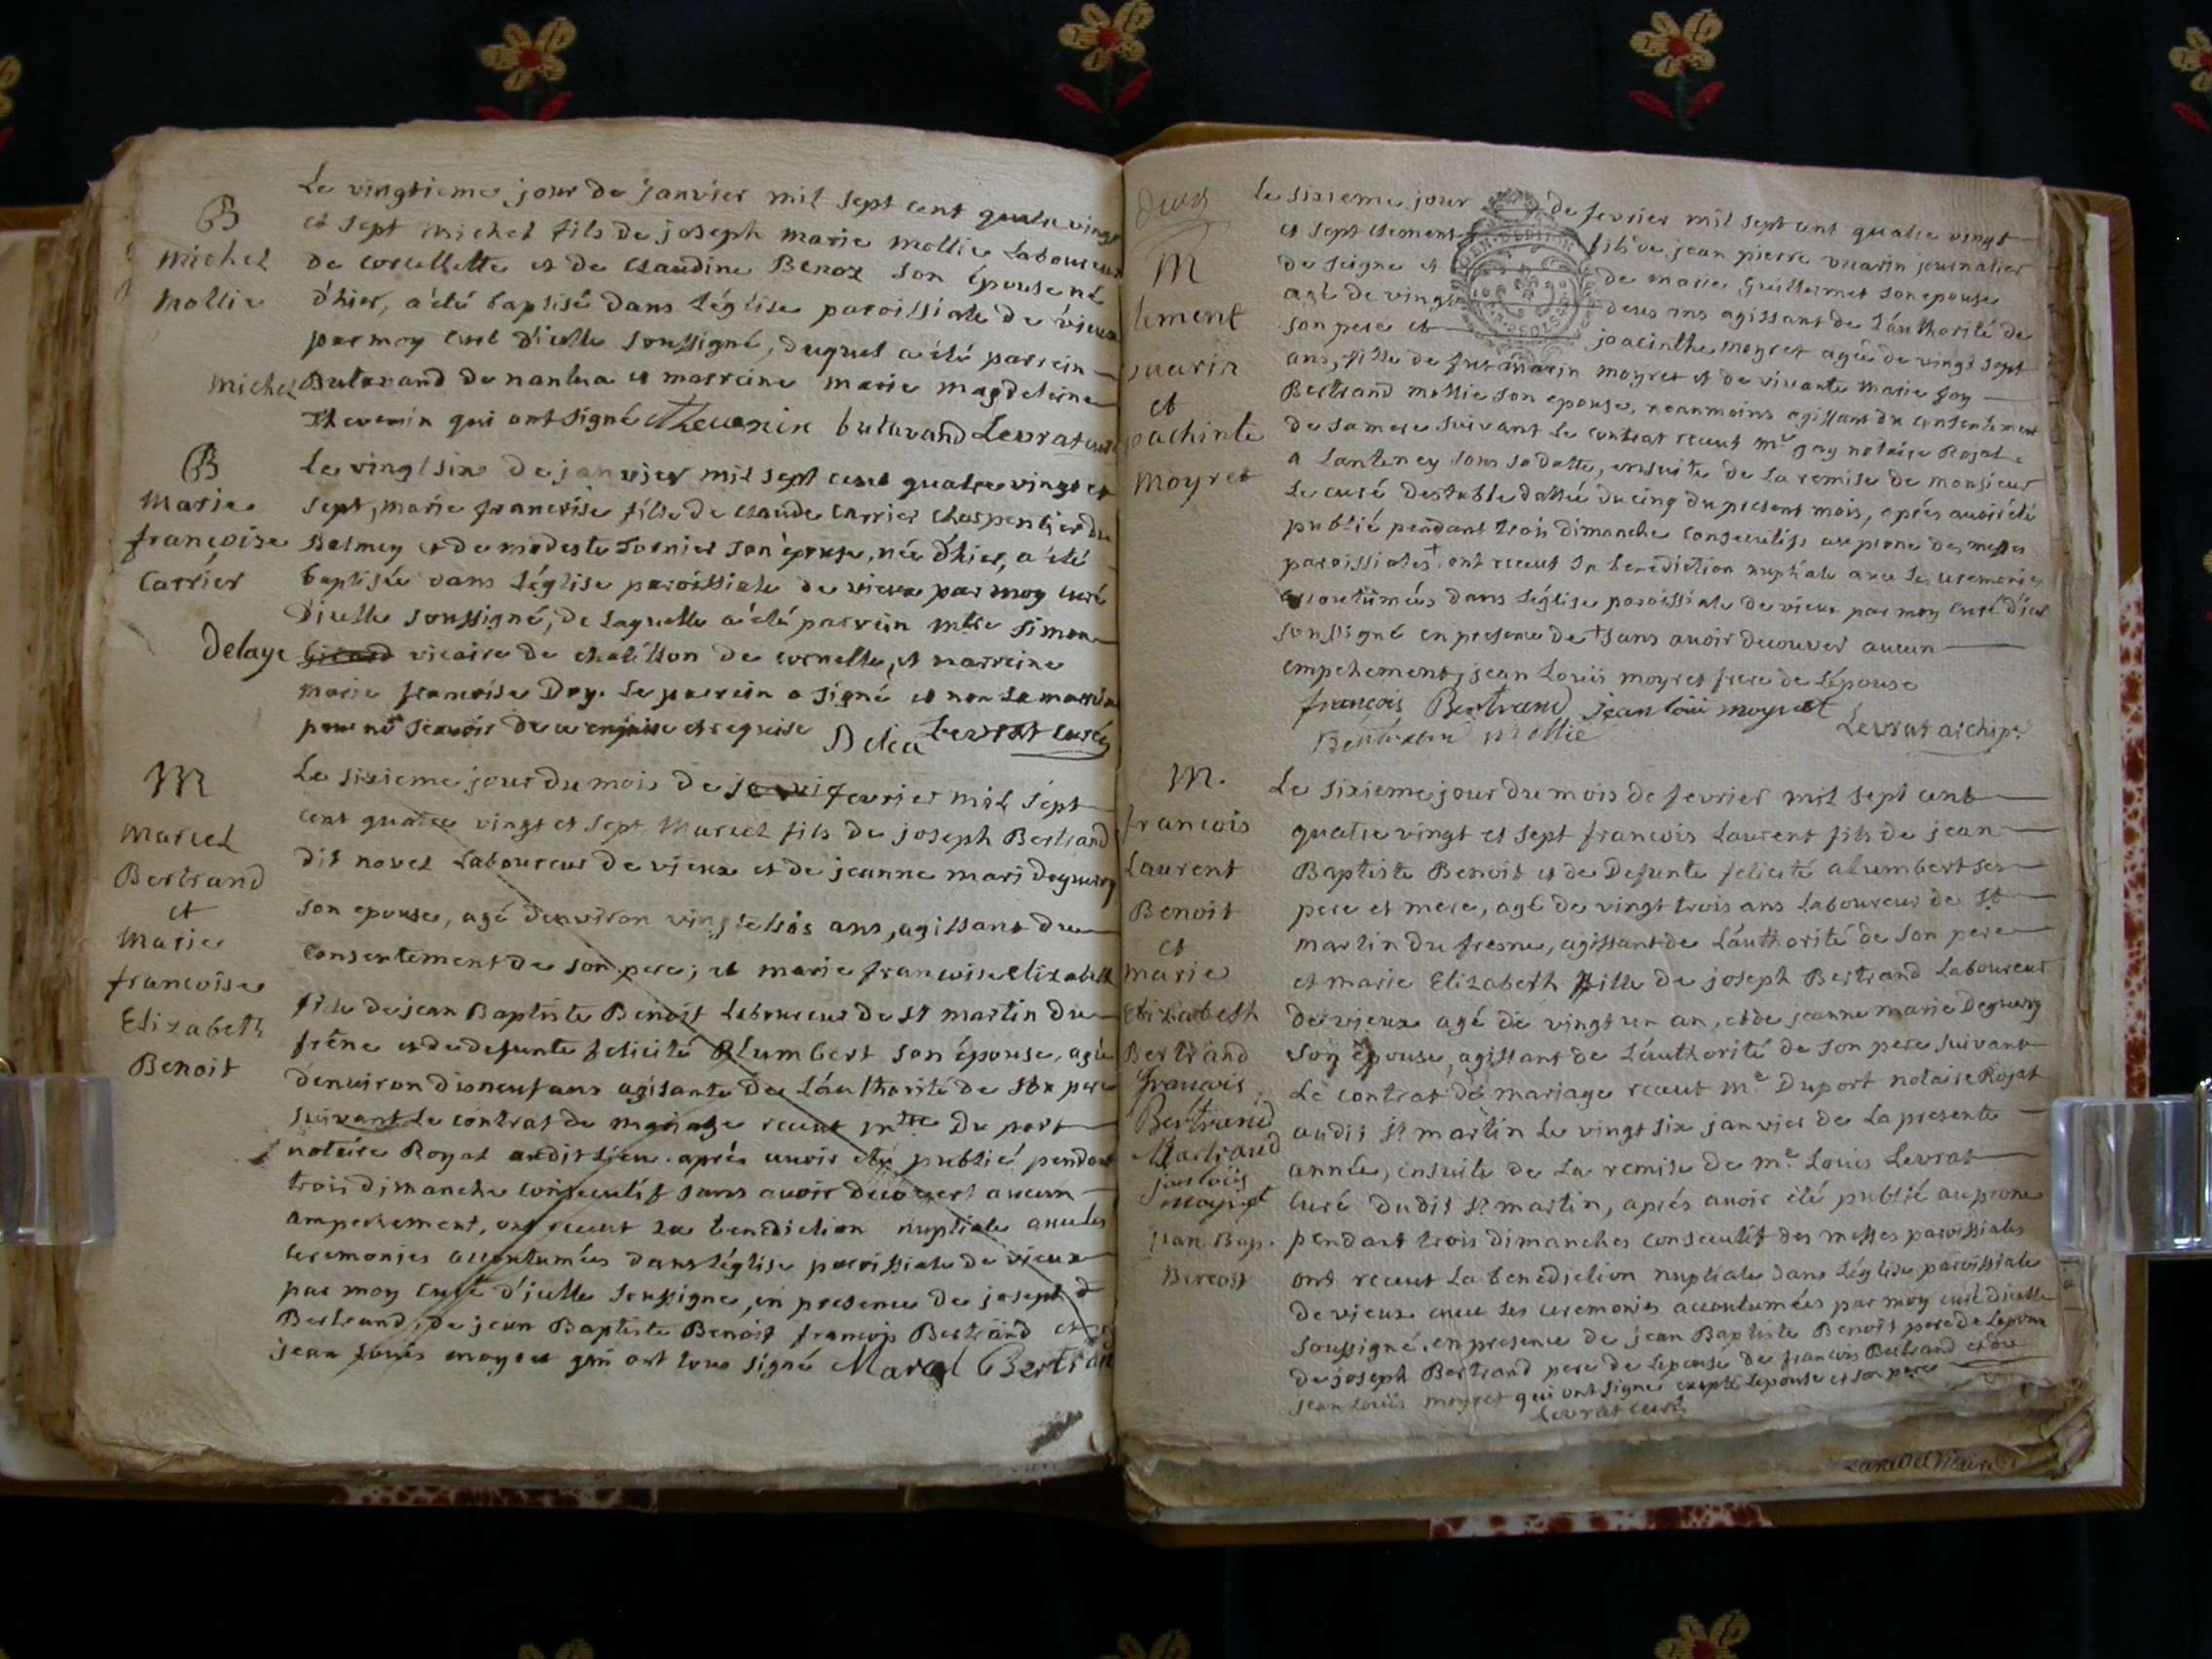 Le vingtieme jour de janvier mil sept cent quatre vingt
B
et sept michel fils de joseph marie mollie Laboureur
michel
de corcellette et de claudine Benoz son épouse né
mollie
d'hier, a été baptisé dans l'église paroissiale de vieux
par moy curé d'icelle soussigné, duquel a été parrein
michel Butavand de nantua et marreine marie magdeleine
Thevenin qui ont signé Thevenin butavand Levrat curé
B
Le vingt six de janvier mil sept cent quatre vingt et
Marie
sept, marie francoise fille de claude carrier charpentier du
françoise
Balmey et de modeste son épouse, née d'hier, a été
Carrier
baptisée dans l'église paroissiale de vieux par moy curé
d'icelle soussigné, de laquelle a été parrein mtre simon
Delaye vicaire de chatillon de cornelle, et marreine
marie francoise Dey. Le parrein a signé et non la marreine
pour ne sçavoir de ce enquise et requise Levrat curé
M
Le sixieme jour du mois de fevrier mil sept
Marcel
cent quatre vingt et sept Marcel fils de joseph Bertrand
Bertrand
dit novel Laboureur de vieux et de jeanne mari Deguerry
et
son epouse, agé denviron vingt trois ans, agissant du
Marie
consentement de son pere; et marie francoise Elizabeth
francoise
fille de jean Baptiste Benoit Laboureur de st martin du
Elizabeth
frêne et de defunte felicité Alumbert son épouse, agée
Benoit
denviron dixneuf ans agisante de L'authorité de son pere
suivant le contrat de mariage receut mtre Du port
notaire Royal audit lieu. aprés avoir été publié pendant
trois dimanche consecutif sans avoir decouvert aucun
ampechement, ont receut la benediction nuptiale avec les
ceremonies accoutumées dans l'église paroissiale de vieux
par moy curé d'icelle soussigne, en presence de joseph
Bertrand, de jean Baptiste Benoit francois Bertrand et
jean louis moyret qui ont tous signé Marcel Bertrand
deux
le sixieme jour de fevrier mil sept cent quatre vingt
M
et sept clement fils de jean pierre vuarin journalier
lement
de seigne et de marie Guillermet son epouse
vuarin
agé de vingt deux ans agissant de L'authorité de
et
son pere et joacinthe moyret agée de vingt sept
joachinte
ans, fille de moyret et de vivante Marie
moyret
Bertrand mollie son epouse, neanmoins agissant du consentement
de sa mere suivant le contrat receut me gay notaire Royal
a Lanteney sous sa datte, ensuite de la remise de monsieur
le curé destable dattée du cinq du present mois, aprés avoir été
publié pendant trois dimanche consecutifs au prone des messes
paroissiales + ont receut la benediction nuptiale avec les ceremonies
accoutumées dans l'église paroissiale de vieux par moy curé d'icel
soussigné en presence de + sans avoir decouver aucun
empechement, jean Louis moyret frere de l'épouse
françois Bertrand jean loüi moyret
Bertrand mollie Levrat archip.
M.
Le sixieme jour du mois de fevrier mil sept cent
francois
quatre vingt et sept francois Laurent fils de jean
Laurent
Baptiste Benoit et de Defunte felicité alumbert ses
Benoit
pere et mere, agé de vingt trois ans Laboureur de St
et
martin du fresne, agissant de L'authorité de son pere
marie
et marie Elizabeth fille de joseph Bertrand Laboureur
Elizabeth
de vieux agé de vingt un an, et de jeanne marie Deguerry
Bertrand
son épouse, agissant de L'authorité de son pere suivant
françois
Le contrat de mariage receut me Duport notaire Royal
Bertrand
audit st martin Le vingt six janvier de La presente
Bertrand
année, ensuite de La remise de me Louis Levrat
jan loüis
moyret
curé dudit st martin, aprés avoir été publié au prone
jean Bap.
pendant trois dimanches consecutif des messes paroissiales
Benoit
ont receut La benediction nuptiale dans l'église paroissiale
de vieux avec les ceremonies accoutumées par moy curé d'icelle
soussigné. en presence de jean Baptiste Benoit pere de l'epoux
de joseph Bertrand pere de l'epouse de francois Bertrand et de
jean Louis moyret qui ont signé excepté l'epouse et son pere
Levrat curé